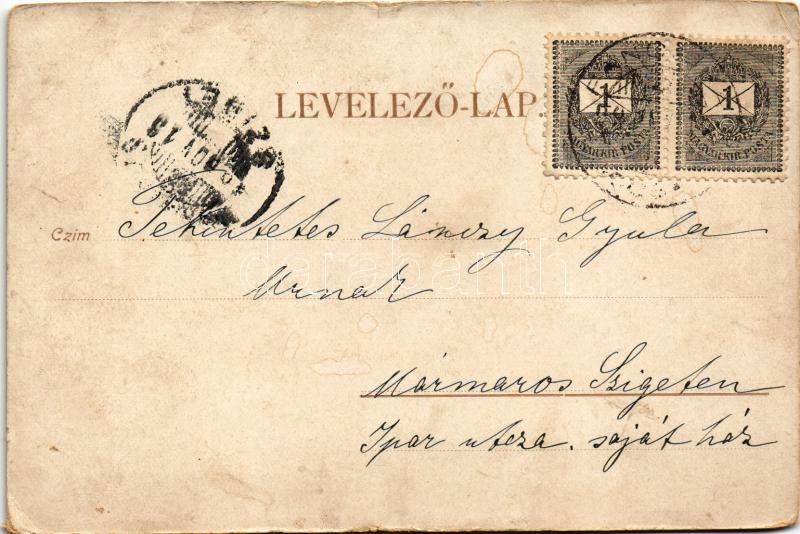 LEVELEZŐ-LAP.
1 1
MAGY. KIR. POSTA MAGY. KIR. POSTA
Czim Tekintetes Lánczy Gyula
Urnak
darabanth
Mármaros Szigeten
Ipar utcza. saját ház